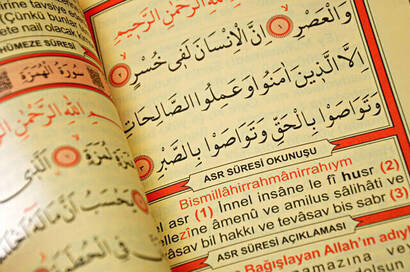 irine tavsiye e
(Çünkü bunlar
ete nail olacak
HÜMEZE SÛRESİ
سُورَةُ الْهُمَزَةِ
اللهِ الرَّحْمٰنِ الرَّحِيمِ
لُمَزَةٍ
الَّذِي
يَحْسَبُ أَنَّ مَالَهُ
فِي الْحُطَمَةِ
اللهِ الرَّحْمٰنِ الرَّحِيمِ
وَالْعَصْرِ ۙ ﴿١﴾ اِنَّ الْاِنْسَانَ لَفِى خُسْرٍ ۙ ﴿٢﴾
اِلَّا الَّذِينَ اٰمَنُوا وَعَمِلُوا الصَّالِحَاتِ
وَتَوَاصَوْا بِالْحَقِّ وَتَوَاصَوْا بِالصَّبْرِ ﴿٣﴾
ASR SÛRESİ OKUNUŞU
Bismillâhirrahmânirrahıym
el asr (1) İnnel insâne le fî husr (2)
ellezîne âmenû ve amilus sâlihâti ve
vâsav bil hakkı ve tevâsav bis sabr (3)
ASR SÛRESİ AÇIKLAMASI
Bağışlayan Allah'ın adıyla